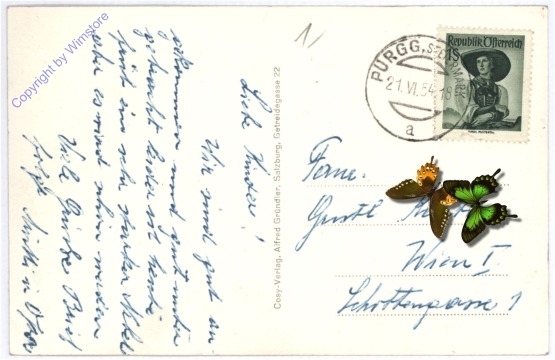 Copyright by Wimstore
Liebe Kinder!
Wir sind gut an-
gekommen und gut unter
gebracht leider ist heute
früh ein sehr starker Nebel
aber es wird schon werden
Viele Grüße Brief
folgt
Cosy-Verlag, Alfred Gründler, Salzburg, Getreidegasse 22
PÜRGG, STEIERMARK
21.VI.54-18
a
Republik Österreich
1S
Fam.
Gustl
Wien I.
Schottengasse 1